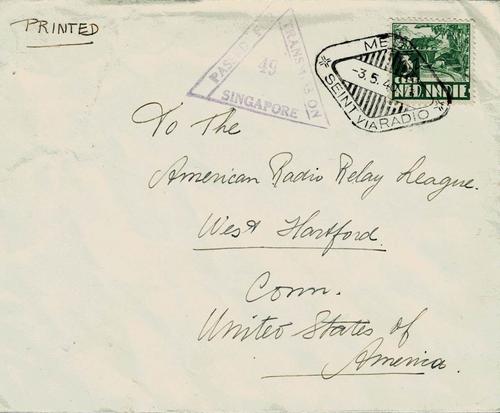 PRINTED
PASSED FOR TRANSMISSION
49
SINGAPORE
-3.5.4
SEINT VIA RADIO
NED INDIE
To The
American Radio Relay League.
West Hartford.
Conn.
United States of
America.